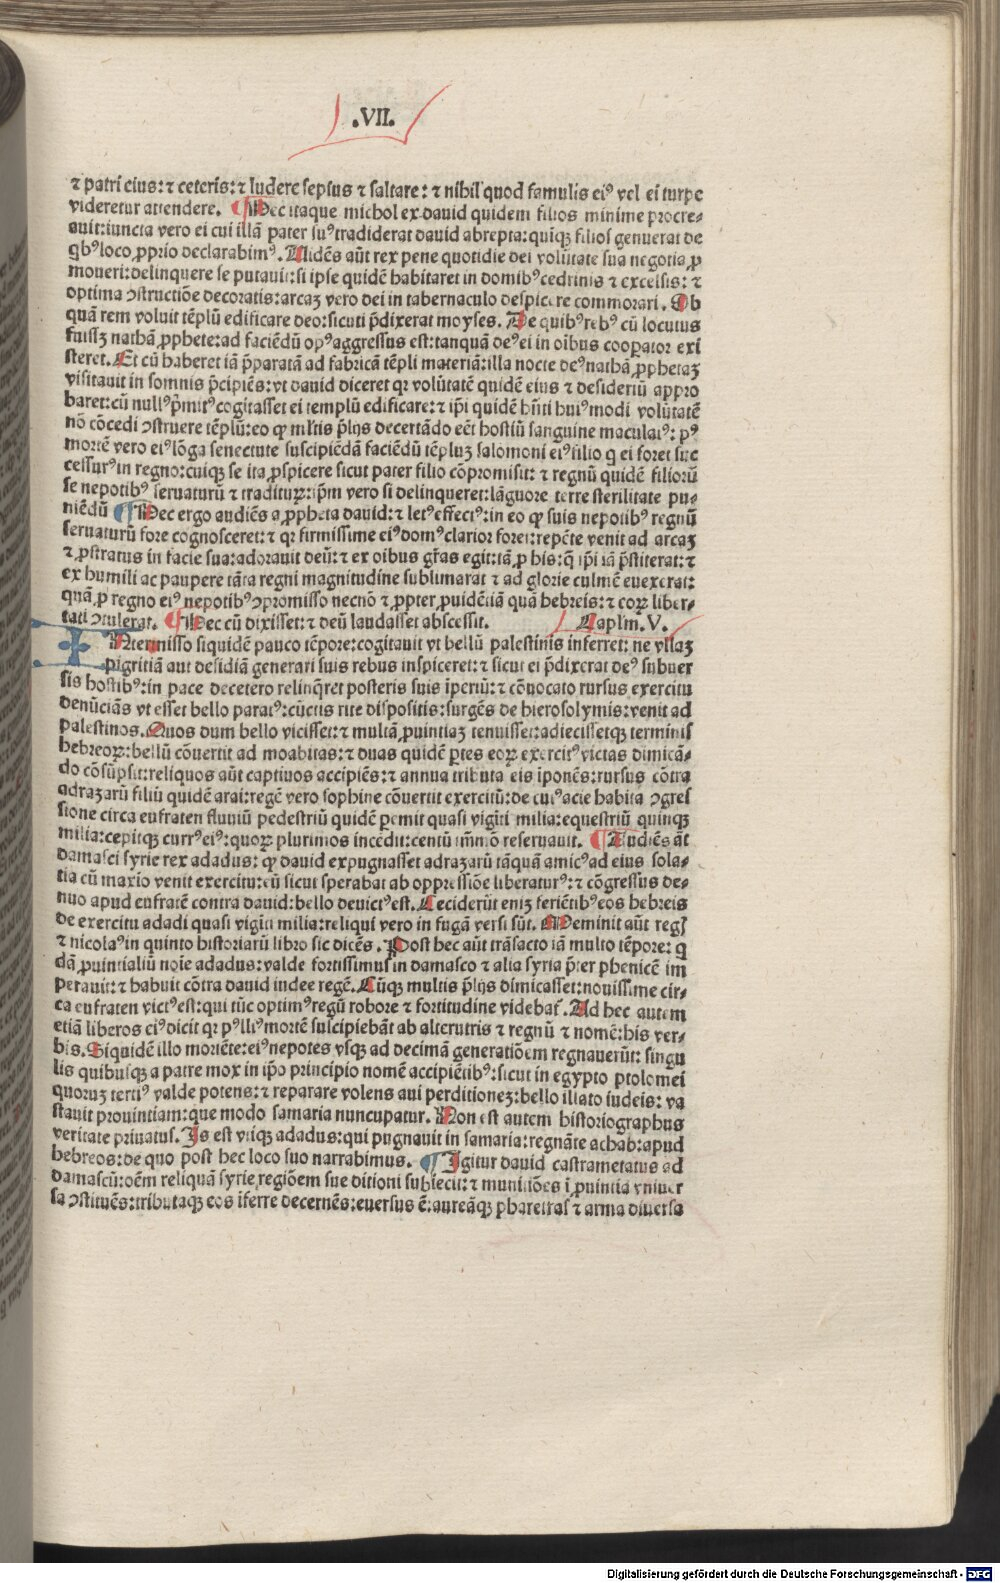 .VII.
⁊ patri eius: ⁊ ceteris: ⁊ ludere sepius ⁊ saltare: ⁊ nihil quod famulis eiꝰ vel ei turpe
videretur attendere. ¶ Hec itaque michol ex dauid quidem filios minime procre-
auit: iuncta vero ei cui illā pater suꝰ tradiderat dauid abrepta: quinqꝫ filios genuerat de
qbꝰ loco ꝓprio declarabimꝰ. Uidēs aūt rex pene quotidie dei volūtate sua negotia ꝓ
moueri: delinquere se putauit: si ipse quidē habitaret in domibꝰ cedrinis ⁊ excelsis: ⁊
optima ꝯstructiōe decoratis: arcaꝫ vero dei in tabernaculo despicere commorari. Ob
quā rem voluit tēplū edificare deo: sicuti p̄dixerat moyses. De quibꝰ rebꝰ cū locutus
fuissꝫ nathā ꝓphete: ad faciēdū opꝰ aggressus est: tanquā deꝰ ei in oībus cooꝑator exi
steret. Et cū haberet iā p̄paratā ad fabricā tēpli materiā: illa nocte deꝰ nathā ꝓphetaꝫ
visitauit in somnis p̄cipiēs: vt dauid diceret qꝛ volūtatē quidē eius ⁊ desideriū appro
baret: cū nullꝰ p̄mitꝰ cogitasset ei templū edificare: ⁊ ip̄i quidē hn̄ti huiꝰmodi volūtatē
nō cōcedi ꝯstruere tēplū: eo ꝙ mltis p̄lijs decertādo eēt hostiū sanguine maculatꝰ: pꝰ
mortē vero eiꝰ lōga senectute suscipiēdā faciēdū tēpluꝫ salomoni eiꝰ filio q ei foret suc
cessurꝰ in regno: cuiqꝫ se ita ꝓspicere sicut pater filio cōpromisit: ⁊ regnū quidē filiorū
se nepotibꝰ seruaturū ⁊ traditurꝫ: ip̄m vero si delinqueret: lāguore terre sterilitate pu-
niēdū ¶ Hec ergo audiēs a ꝓpheta dauid: ⁊ letꝰ effectꝰ: in eo ꝙ suis nepotibꝰ regnū
seruaturū fore cognosceret: ⁊ qꝛ firmissime eiꝰ domꝰ clarior foret: repēte venit ad arcaꝫ
⁊ ꝓstratus in facie sua: adorauit deū: ⁊ ex oībus gr̄as egit: tā ꝓ his: q̄ ip̄i iā p̄stiterat: ⁊
ex humili ac paupere tāta regni magnitudine sublimarat ⁊ ad glorie culmē euexerat:
quā ꝓ regno eiꝰ nepotibꝰ ꝯpromisso necnō ⁊ ꝓpter ꝓuidētiā quā hebreis: ⁊ coꝝ liber-
tati ꝯtulerat. ¶ Hec cū dixisset: ⁊ deū laudasset abscessit. Caplm. V.
Ntermisso siquidē pauco tēpore: cogitauit vt bellū palestinis inferret: ne vllaꝫ
pigritiā aut desidiā generati suis rebus inspiceret: ⁊ sicut ei p̄dixerat deꝰ subuer
sis hostibꝰ: in pace decetero relinq̄ret posteris suis īperiū: ⁊ cōuocato rursus exercitu
denūciās vt esset bello paratꝰ: cūctis rite dispositis: surgēs de hierosolymis: venit ad
palestinos. Quos dum bello vicisset: ⁊ multā ꝓuintiaꝫ tenuisset: adiecissetqꝫ terminis
hebreoꝝ: bellū cōuertit ad moabitas: ⁊ duas quidē ꝑtes eoꝝ exercitꝰ victas dimicā-
do cōsūpsit: reliquos aūt captiuos accipiēs: ⁊ annua tributa eis īponēs: rursus cōtra
adrazarū filiū quidē arai: regē vero sophine cōuertit exercitū: de cuiꝰ acie habita ꝯgres
sione circa eufraten fluuiū pedestriū quidē ꝑemit quasi viginti milia: equestriū quinqꝫ
milia: cepitqꝫ currꝰ eiꝰ: quoꝝ plurimos incēdit: centū im̄mō reseruauit. ¶ Audiēs aūt
damasci syrie rex adadus: ꝙ dauid expugnasset adrazarū tāquā amicꝰ ad eius sola-
tia cū maxīo venit exercitu: cū sicut sperabat ab oppressiōe liberaturꝰ: ⁊ cōgressus de-
nuo apud eufratē contra dauid: bello deuictꝰ est. Ceciderūt eniꝫ feriētibꝰ eos hebreis
de exercitu adadi quasi vigiti milia: reliqui vero in fugā versi sūt. Meminit aūt regꝭ
⁊ nicolaꝰ in quinto historiarū libro sic dicēs. Post hec aūt trāsacto iā multo tēpore: q
dā ꝓuintialiū noīe adadus: valde fortissimus in damasco ⁊ alia syria p̄ter phenicē im
perauit: ⁊ habuit cōtra dauid iudee regē. Cūqꝫ multis p̄lijs dimicasset: nouissime cir-
ca eufraten victꝰ est: qui tūc optimꝰ regū robore ⁊ fortitudine videbat̄. Ad hec autem
etiā liberos eiꝰ dicit qꝛ pꝰ illiꝰ mortē suscipiebāt ab alterutris ⁊ regnū ⁊ nomē: his ver-
bis. Siquidē illo moriēte: eiꝰ nepotes vsqꝫ ad decimā generatiōem regnauerūt: singu
lis quibusqꝫ a patre mox in ip̄o principio nomē accipiētibꝰ: sicut in egypto ptolomei
quoruꝫ tertiꝰ valde potens: ⁊ reparare volens aui perditioneꝫ: bello illato iudeis: va
stauit prouintiam: que modo samaria nuncupatur. Non est autem historiographus
veritate priuatus. Is est vtiqꝫ adadus: qui pugnauit in samaria: regnāte achab: apud
hebreos: de quo post hec loco suo narrabimus. ¶ Igitur dauid castrametatus ad
damascū: oēm reliquā syrie regiōem sue ditioni subiecit: ⁊ munitiōes ī ꝓuintia vniuer
sa ꝯstituēs: tributaqꝫ eos īferre decernēs: euersus ē: aureāqꝫ pharetras ⁊ arma diuersa
Digitalisierung gefördert durch die Deutsche Forschungsgemeinschaft - DFG